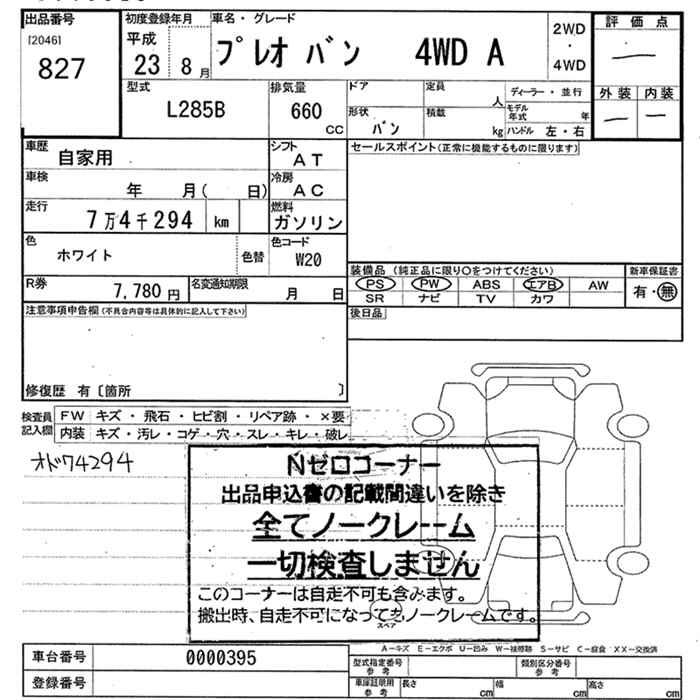 出品番号
[2046]
827
初度登録年月
平成
23 8月
車名・グレード
プレオ バン 4WD A
2WD
・
4WD
評価点
―
外装 内装
― ―
型式
L285B
排気量
660
CC
ドア
形状
バン
定員
人
積載
kg
ディーラー・並行
モデル年式
年
ハンドル 左・右
車歴
自家用
シフト
AT
セールスポイント(正常に機能するものに限ります)
車検
年 月( 日)
冷房
AC
走行
7万4千294 km
燃料
ガソリン
色
ホワイト
色替
色コード
W20
装備品 (純正品に限り○をつけてください)
PS PW ABS エアB AW
SR ナビ TV カワ
新車保証書
有・無
R券
7,780円
名変通知期限
月 日
後日品
注意事項申告欄(不具合内容等は具体的に記入して下さい)
修復歴 有〔箇所 〕
検査員
記入欄
FW キズ・飛石・ヒビ割・リペア跡・×要
内装 キズ・汚レ・コゲ・穴・スレ・キレ・破レ
オド74294
Nゼロコーナー
出品申込書の記載間違いを除き
全てノークレーム
一切検査しません
このコーナーは自走不可も含みます。
搬出時、自走不可になってもノークレームです。
スペア
A-キズ E-エクボ U-凹み W-補修跡 S-サビ C-腐食 XX-交換済
車台番号
0000395
登録番号
型式指定番号
参考
類別区分番号
参考
車庫証明用
参考
長さ cm
幅 cm
高さ cm